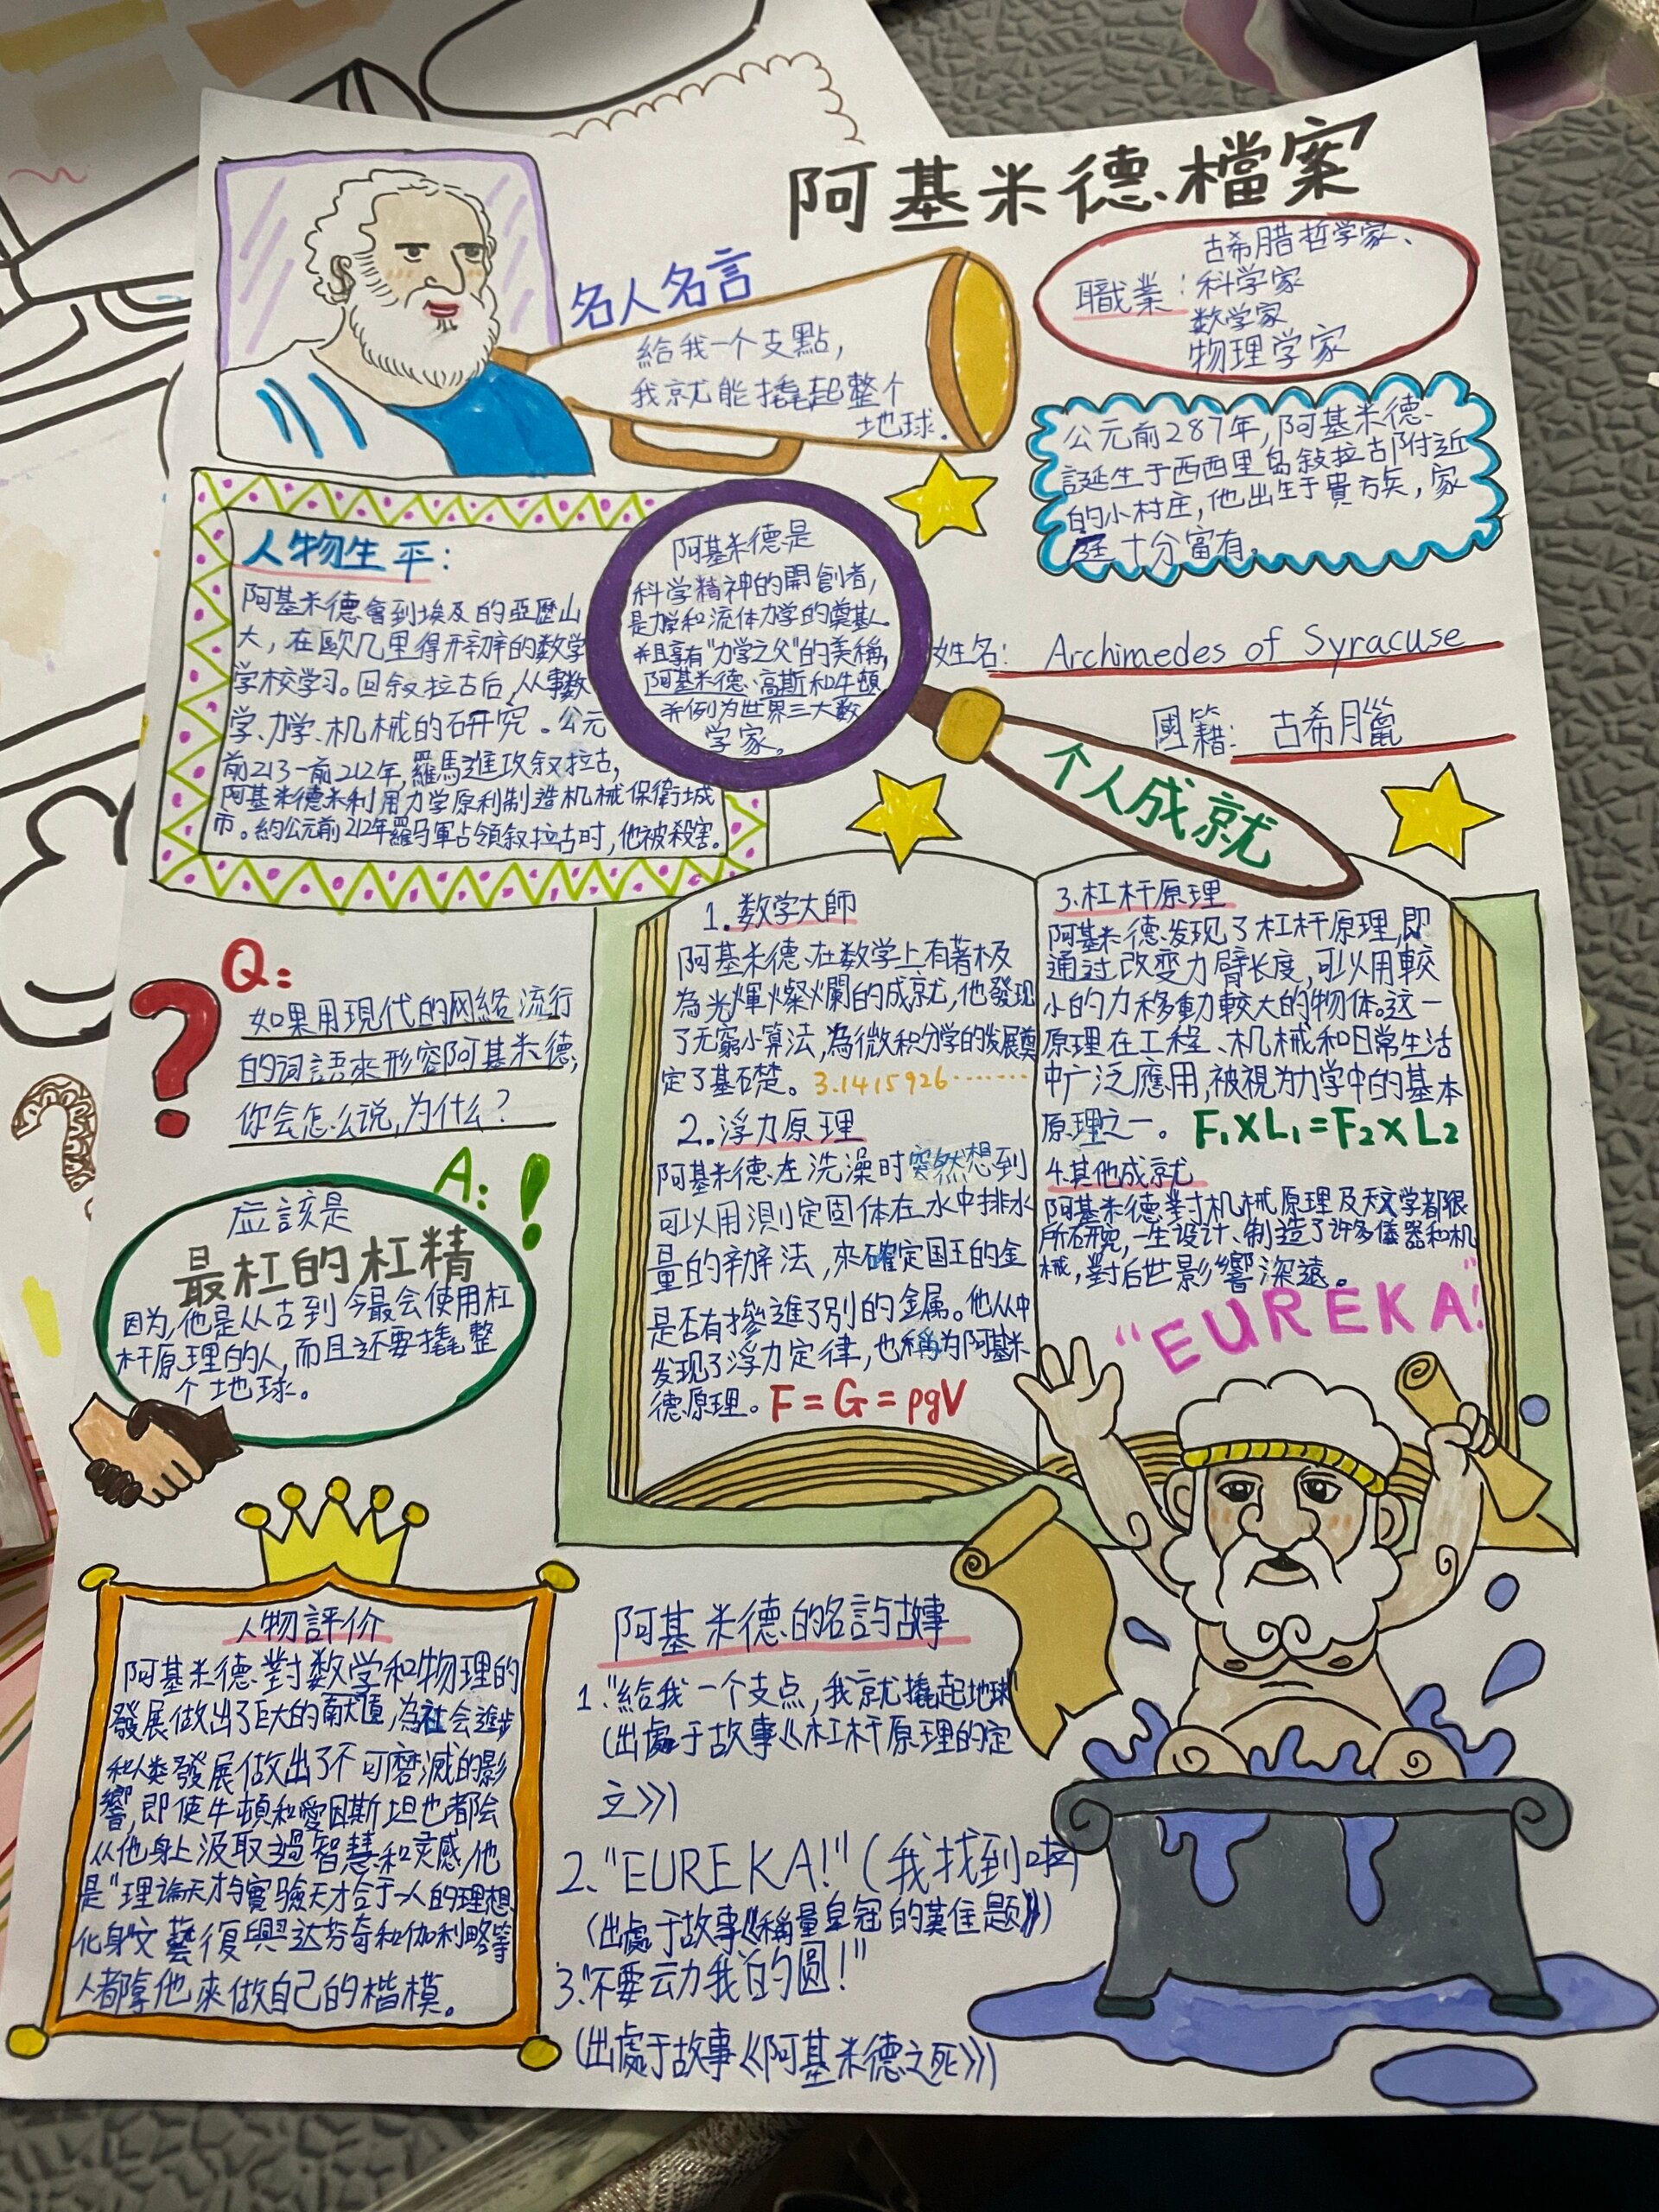 阿基米德檔案
名人名言
給我一个支點，
我就能撬起整个
地球.
古希腊哲学家、
職業：科学家
数学家
物理学家
公元前287年，阿基米德
誕生于西西里島敘拉古附近
的小村庄，他出生于貴族，家
庭十分富有。
人物生平：
阿基米德會到埃及的亞歷山
大，在歐几里得开辦的数学
学校学习。回敘拉古后，从事数
学、力学、机械的研究。公元
前213-前212年，羅馬進攻叙拉古，
阿基米德利用力学原利制造机械保衛城
市。約公元前212年羅马軍占領叙拉古时，他被殺害。
阿基米德是
科学精神的開創者，
是力学和流体力学的奠基人
并且享有"力学之父"的美稱，
阿基米德、高斯和牛頓
并例为世界三大数
学家。
姓名： Archimedes of Syracuse
國籍： 古希臘
个人成就
1.数学大師
阿基米德在数学上有著极
為光煇燦爛的成就，他發现
了无窮小算法，為微积分学的发展奠
定了基礎。3.1415926········
2.浮力原理
阿基米德在洗澡时突然想到
可以用測定固体在水中排水
量的辦法，來確定国王的金
是否有摻進了別的金属。他从中
发现了浮力定律，也稱为阿基米
德原理。F=G=ρgV
3.杠杆原理
阿基米德发现了杠杆原理，即
通过改变力臂长度，可以用較
小的力移動較大的物体。这一
原理在工程、机械和日常生活
中广泛應用，被視为力学中的基本
原理之一。F₁×L₁=F₂×L₂
4.其他成就
阿基米德對机械原理及天文学都很
所研究，一生设计、制造了许多儀器和机
械，對后世影響深遠。
"EUREKA!"
Q：
如果用現代的网絡流行
的词語來形容阿基米德，
你会怎么说，为什么？
A：
应該是
最杠的杠精
因为，他是从古到今最会使用杠
杆原理的人，而且还要撬整
个地球。
人物評价
阿基米德對数学和物理的
發展做出了巨大的献，為社会進步
和人类發展做出了不可磨滅的影
響，即使牛頓和愛因斯坦也都会
从他身上汲取過智慧和灵感，他
是"理論天才与實驗天才合于一人的理想
化身"文藝復興达芬奇和伽利略等
人都拿他來做自己的楷模。
阿基米德的名言与故事
1."給我一个支点，我就撬起地球"
(出處于故事《杠杆原理的定
立》)
2."EUREKA!"(我找到啦)
(出處于故事《稱量皇冠的難題》)
3."不要动我的圆!"
(出處于故事《阿基米德之死》)